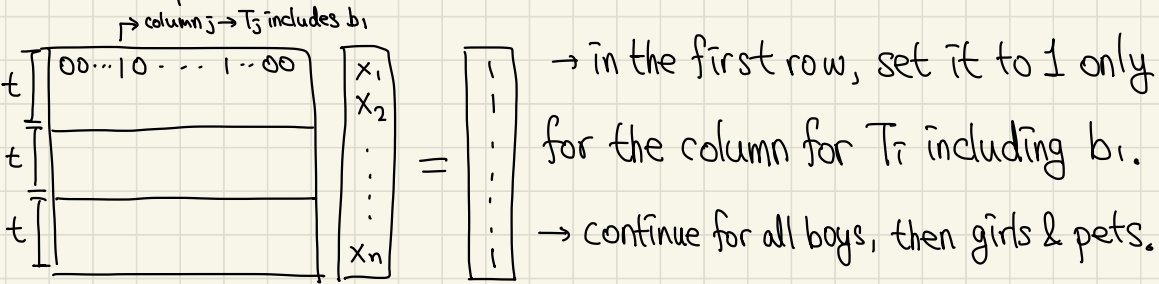 column j → Tj includes b₁
t 00···10 · · · 1··00 x₁ 1 → in the first row, set it to 1 only
x₂ 1
t = for the column for Ti including b₁.
t xn 1 → continue for all boys, then girls & pets.